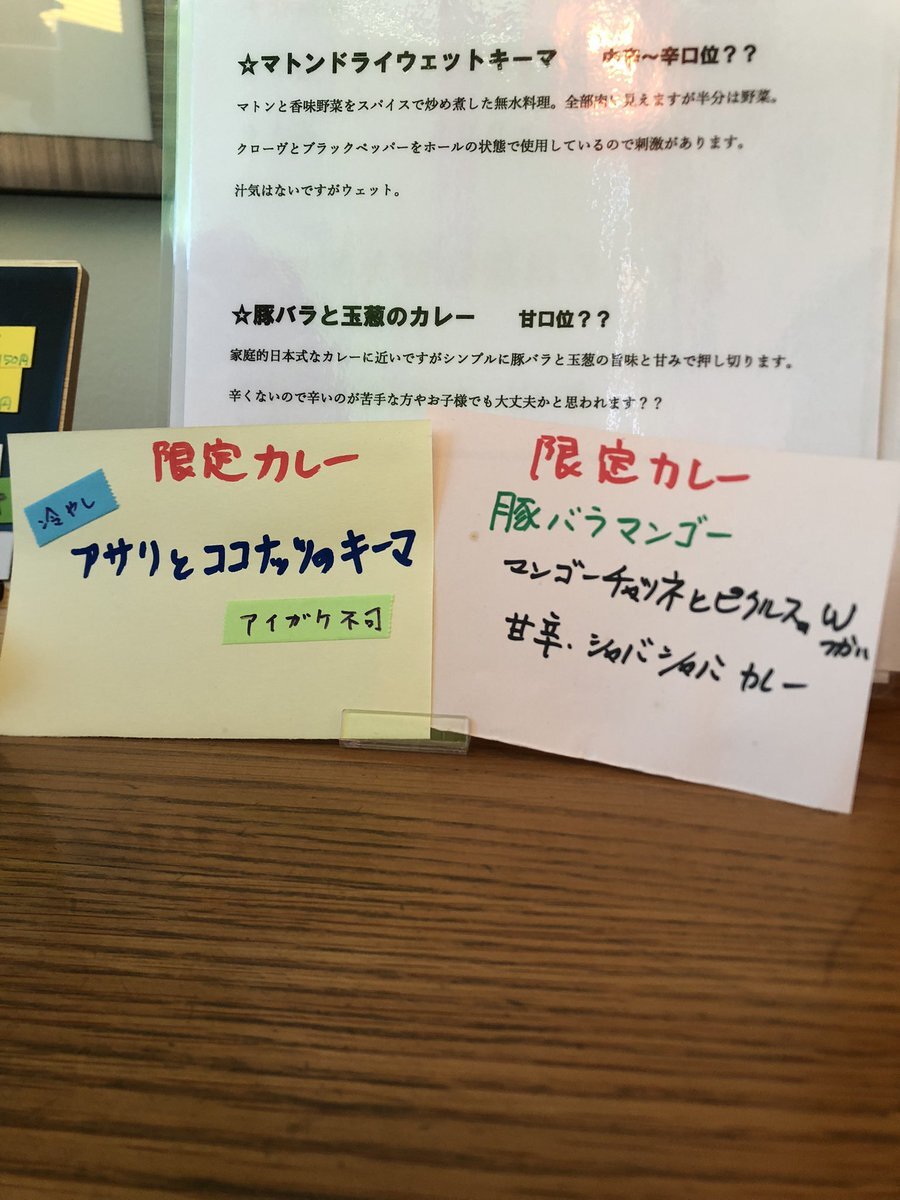 ☆マトンドライウェットキーマ　中辛～辛口位？？
マトンと香味野菜をスパイスで炒め煮した無水料理。全部肉に見えますが半分は野菜。
クローヴとブラックペッパーをホールの状態で使用しているので刺激があります。
汁気はないですがウェット。
☆豚バラと玉葱のカレー　甘口位？？
家庭的日本式なカレーに近いですがシンプルに豚バラと玉葱の旨味と甘みで押し切ります。
辛くないので辛いのが苦手な方やお子様でも大丈夫かと思われます？？
150円
円
限定カレー
冷やし
アサリとココナッツのキーマ
アイガケ不可
限定カレー
豚バラマンゴー
マンゴーチャツネとピクルスのW
づかい
甘辛.シャバシャバカレー